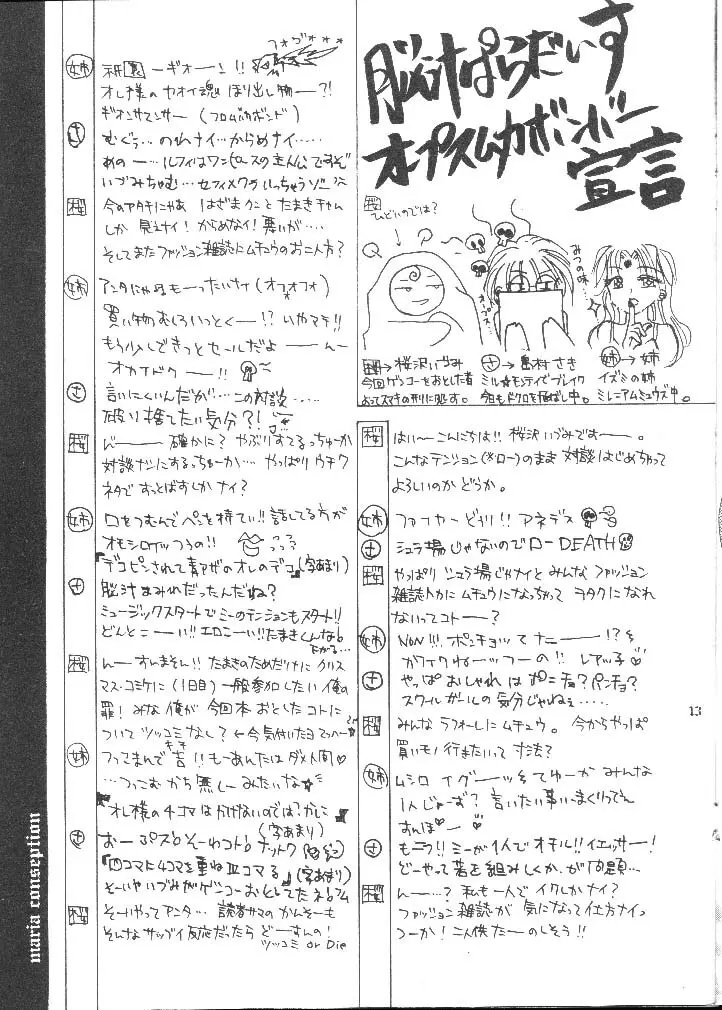 脳汁ぱらだいす
オプスムカボンバー
宣言
桜
ひどいのでは?
みつの味…
桜→桜沢いづみ
今回ゲンコーをおとした者
よってスマキの刑に処す。
さ→島村さき
ミル★モンティでブレイク
今日もドクロを飛ばし中。
姉→姉
イズミの姉
ミレニアムミュウズ中。
桜 はいーこんにちは!! 桜沢いづみですー。
こんなテンション(※ロー)のまま対談はじめちゃって
よろしいのかどうか。
姉 ファイヤーどりル!! アネデス
さ シュラ場じゃないのでローDEATH
桜 やっぱりシュラ場じゃナイとみんなファッション
雑誌トカにムチュウになっちゃってヲタクになれ
ないってコトー?
姉 NoN!!! ポンチョッてナニー!?
カワイクねーッつーの!! レアッ子♡
さ やっぱおしゃれはポンチョ?パンチョ?
スクールガールの気分じゃねぇ……
桜 みんなラフォーレにムチュウ。今からやっぱ
買いモノ行きたいって寸法?
姉 ムシロイグーッッそてゆーかみんな
1人じゃーず? 言いたい事いいまくりってん
すんぽー♡
さ もニラ!! ミーが1人でオチル!! イエッサー!
どーやって蓍を組みしくか、が問題…
桜 んー…? 私も一人でイクしかナイ?
ファッション雑誌が気になって仕方ナイっ
つーか! 二人供たーのしそう!!
13
フォヴォォ***
姉 祇園ーギオーン!!
オレ様のヤオイ魂ほり出し物ー?!
ギオンサマンサー(フロムバカボンド)
さ むぐぅ…のれナイ…からめナイ……
あのー…ルフィはワンピースの主人公ですぞ
いづみちゅむ…セフィメクワルっちゃうゾー
桜 今のアタチにゃあはざまクンことたまきチャム
しか見えナイ! からめなイ! 悪いが…
そしてまたファッション雑誌にムチュウのお二人方?
姉 アンタにゃぁもーったいナイ(オフォフォ)
買い物むしろいっとくー!? いやマテ!!
もう少しできっとセールだよーんー
オカイドクー!!
さ 言いにくいんだが…この対談……
破り捨てたい気分?!
桜 んー 確かに? やぶりすてるっちゅーか
対談ナシにするっちゅーか…やっぱりウチワ
ネタですっとばすしかナイ?
姉 口をつむんでペンを持てい!! 話してる方が
オモシロイッつうの!!
『デコピンされて青アザのオレのデコ』(字あまり)
さ 脳汁まみれだったんだね?
ミュージックスタートでミーのテンションもスタート!!
どんとこーい!! エロこーい!! たまきくんな♂
さがる…
桜 んーすいません!! たまきのためだけにクリス
マス・コミケに(1日目)一般参加したい俺の
罪! みな俺が今回本おとしたコトに
ついてツッコミなし?←今気付いたヨマッハー
姉 つってまんで吉!! もーあんたはダメ人間♡
…つっこむかち無しーみたいな☆
『オレ様の4コマはかけないのではづかしい』
(字あまり)
さ おーぷす♪そーゆコト♪ナットク
『四コマに4コマを重ね皿コマる』(字あまり)
そーいやいづみがゲンコーおとしてたネ♪フム
桜 そーいやってアンタ…読者サマのかんそーも
そんなサップイ反応だったらどーすんの!
ツッコミ or Die
maria conseption